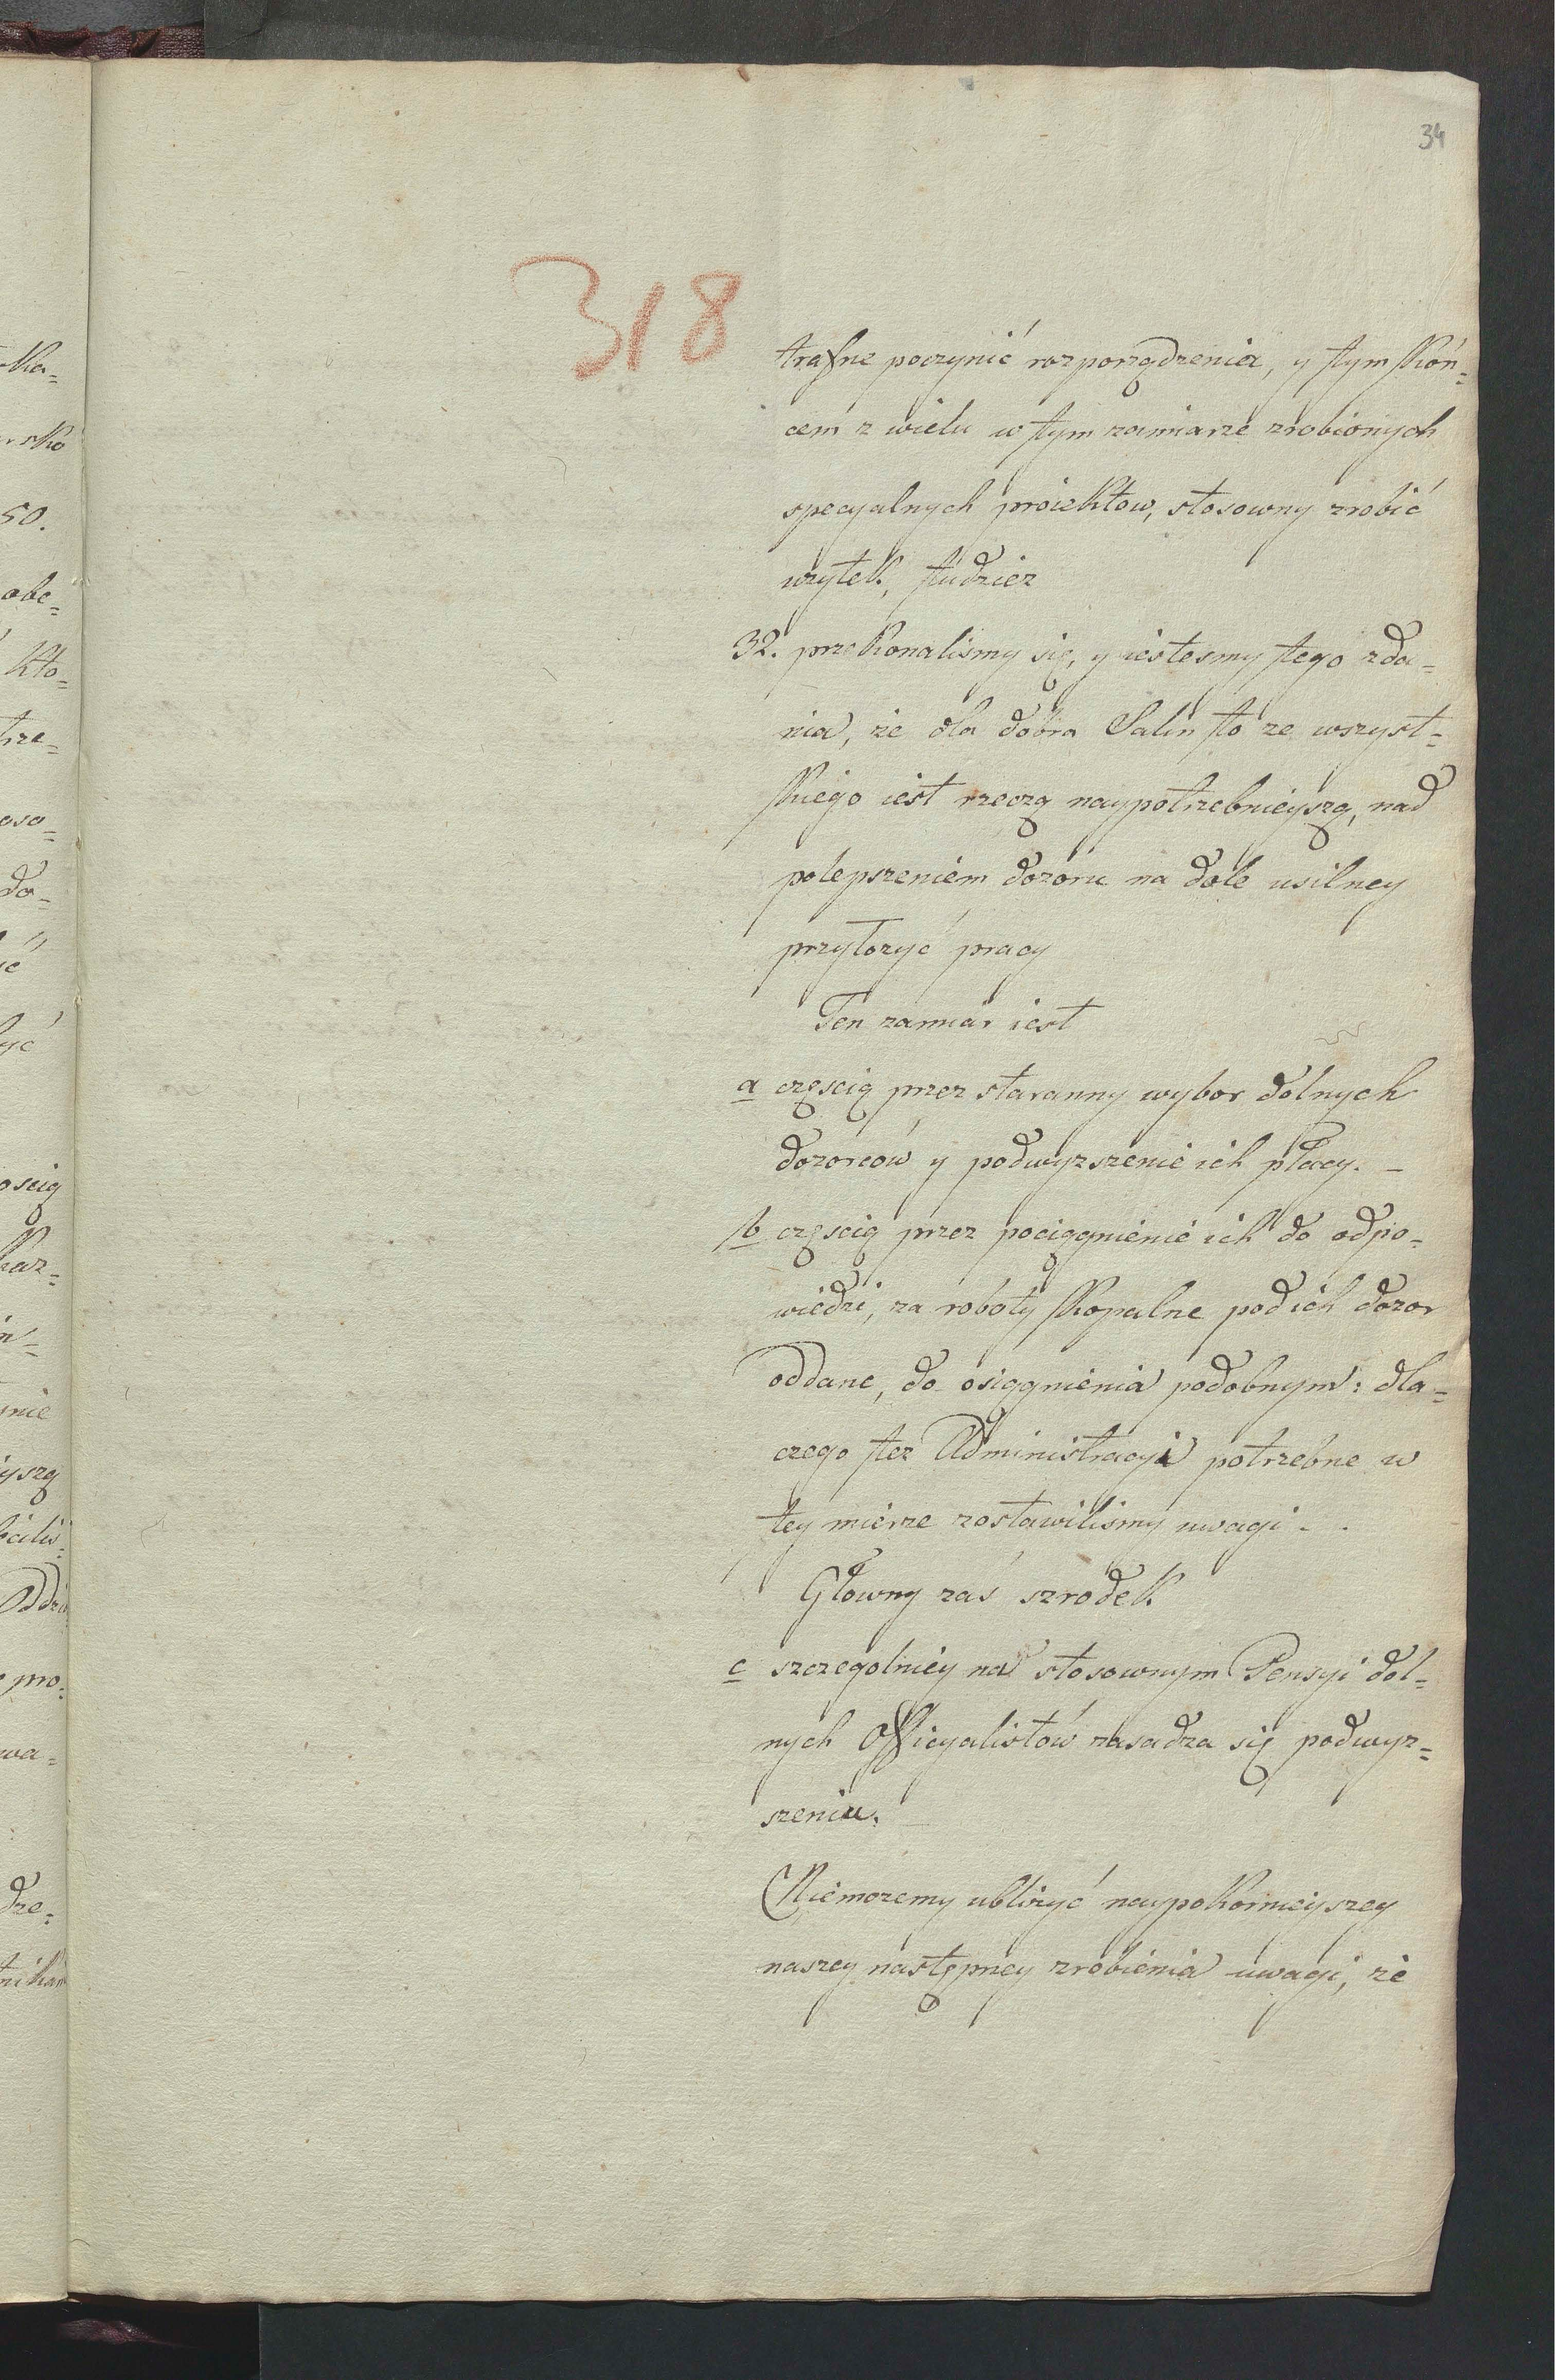 34
318
trafne poczynić rozporządzenia, y tym koń=
cem z wielu w tym zamiarze zrobionych
specyalnych proiektow, stosowny zrobić
użytek, tudzież
32. przekonaliśmy się, y iestesmy tego zda=
nia, że dla dobra Salin to ze wszyst=
kiego iest rzeczą naypotrzebnieyszą, nad
polepszeniem dozoru na dole usilney
przyłożyć pracy
Ten zamiar iest
a częscią przez staranny wybor dolnych
dozorców y podwyzszenie ich płacy. _
b częscią przez pociągnienie ich do odpo=
wiedzi, za roboty kopalne pod ich dozor
oddane, do osiągnienia podobnym: dla=
czego tez Administracyi potrzebne w
tey mierze zostawiliśmy uwagi. .
Głowny zaś szrodek
c szczegolniey na stosownym Pensyi dol=
nych Officyalistów zasadza się podwyz=
szeniu.
Niemozemy ubliżyć naypokornieyszey
naszey następney zrobienia uwagi, że
ska=
rsko
50.
obe=
kto=
trze=
oso=
do=
ić
yć
ością
kaz=
n=
nie
yszą
bilis=
Oddzi
pro=
wa=
dze=
tnikam